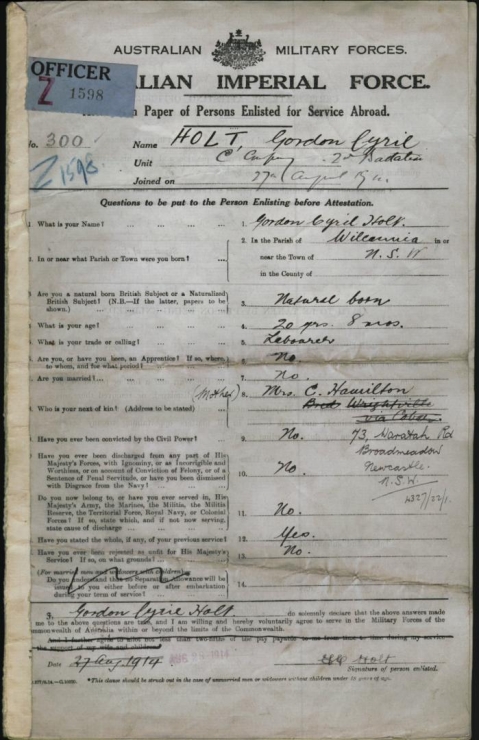 AUSTRALIAN MILITARY FORCES.
OFFICER
Z 1598
ALIAN IMPERIAL FORCE.
n Paper of Persons Enlisted for Service Abroad.
No. 300 Name HOLT, Gordon Cyril
Z1598 Unit C Company 2nd Battalion
Joined on 27th August 1914
Questions to be put to the Person Enlisting before Attestation.
1. What is your Name? 1. Gordon Cyril Holt.
2. In or near what Parish or Town were you born? 2. In the Parish of Wilcannia in or
near the Town of N. S. W
in the County of
3. Are you a natural born British Subject or a Naturalized
British Subject? (N.B.—If the latter, papers to be
shown.) 3. Natural born
4. What is your age? 4. 20 yrs. 8 mos.
5. What is your trade or calling? 5. Labourer
6. Are you, or have you been, an Apprentice? If so, where,
to whom, and for what period? 6. No
7. Are you married? 7. No.
(Mother) 8. Mrs. C. Hamilton
Who is your next of kin? (Address to be stated) Wrightville
via Cobar
Have you ever been convicted by the Civil Power? 9. No. 73, Waratah Rd
Broadmeadow
Have you ever been discharged from any part of His
Majesty's Forces, with Ignominy, or as Incorrigible and
Worthless, or on account of Conviction of Felony, or of a
Sentence of Penal Servitude, or have you been dismissed
with Disgrace from the Navy? 10. No. Newcastle.
N.S.W.
Do you now belong to, or have you ever served in, His
Majesty's Army, the Marines, the Militia, the Militia
Reserve, the Territorial Force, Royal Navy, or Colonial
Forces? If so, state which, and if not now serving,
state cause of discharge 11. No.
Have you stated the whole, if any, of your previous service? 12. Yes.
Have you ever been rejected as unfit for His Majesty's
Service? If so, on what grounds? 13. No.
(For married men and widowers with children)
Do you understand that no Separation Allowance will be
issued to you either before or after embarkation
during your term of service? 14.
I, Gordon Cyril Holt do solemnly declare that the above answers made
me to the above questions are true, and I am willing and hereby voluntarily agree to serve in the Military Forces of the
Commonwealth of Australia within or beyond the limits of the Commonwealth.
And I further agree to allot not less than two-fifths of the pay payable to me from time to time during my service
the support of my wife and children
Date 27 Aug 1914 Holt
Signature of person enlisted.
*This clause should be struck out in the case of unmarried men or widowers without children under 18 years of age.